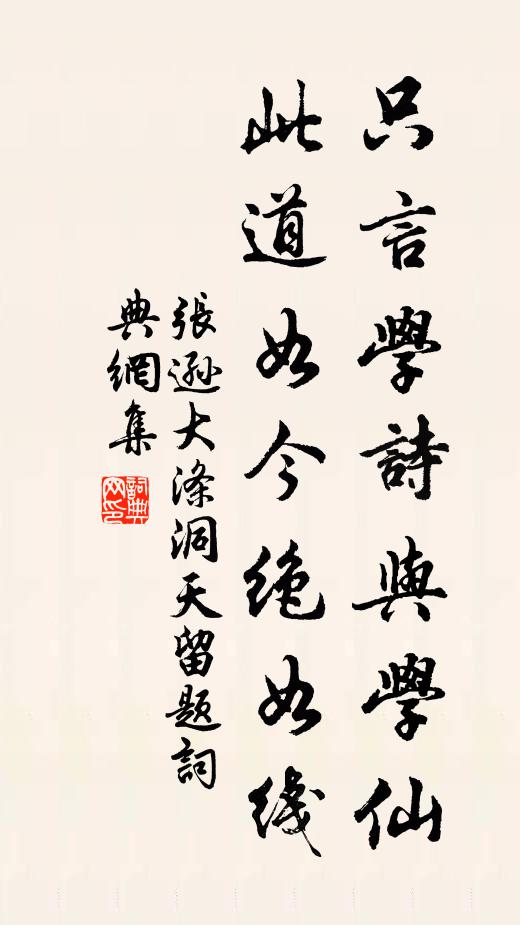 只言學詩與學仙
此道如今絶如綫
張遜大滌洞天留題詞
典網集
詞典网印